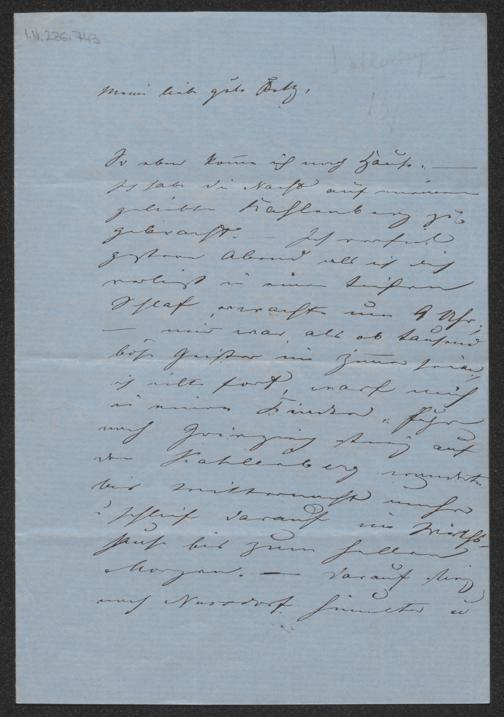 I.N. 226.743
Meine liebe gute Betz,
So eben komme ich nach Hause. —
ich habe die Nacht auf meinem
geliebten Kahlenberg zu-
gebracht. — Ich verfiel
gestern Abend als ich dich
verließ in einen tiefen
Schlaf, erwachte um 9 Uhr,
— mir war, als ob tausend
böse Geister im Zimmer seien,
ich eilte fort, warf mich
in einen Fiaker, fuhr
nach Grinzing stieg auf
den Kahlenberg wanderte
bis Mitternacht umher
u. schlief darauf im Wirths-
haus bis zum hellen
Morgen. — Darauf stieg
nach Nussdorf hinunter u